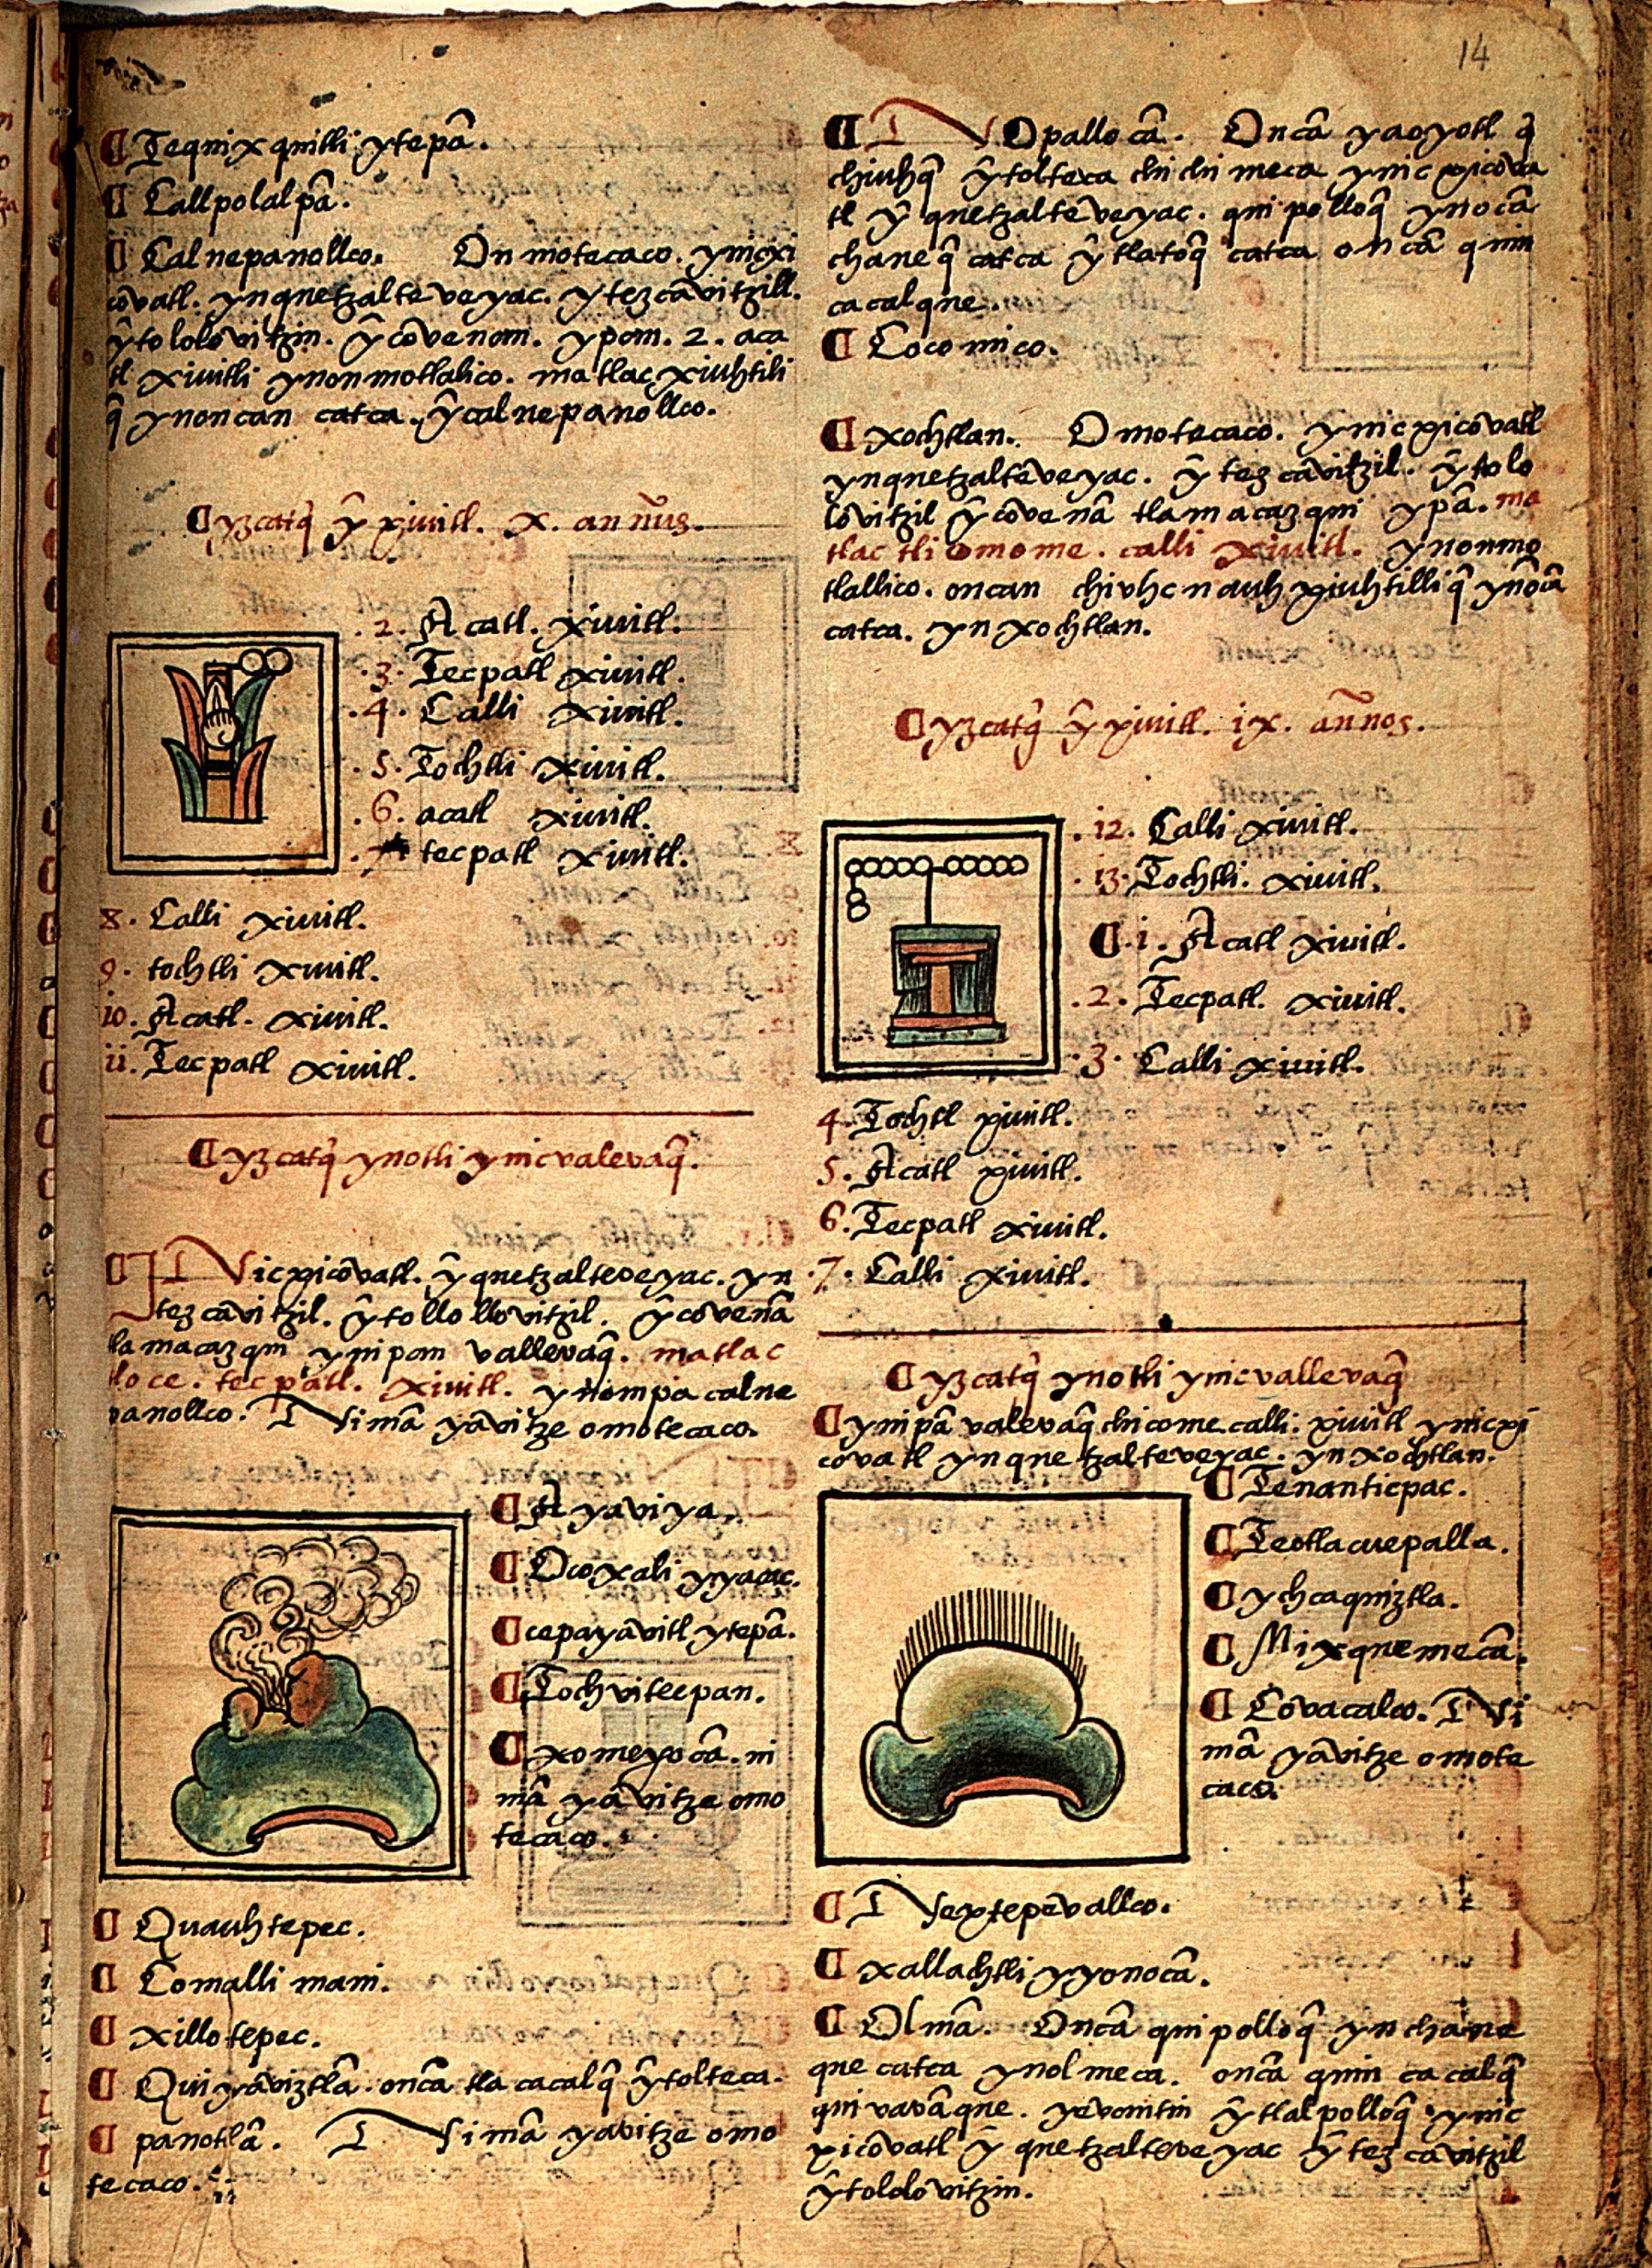 14
¶ Tequixquitli ytepā.
¶ Callpolalpā.
¶ Calnepanollco. On motecaco. ynicxi
covatl. ynquetzalteveyac. y tezcāvitzill.
ŷ tololōvitzin. ŷ cōvenam. ypam. 2. aca
tl xiuitli ynonmotlalico. matlac xiuhtili
q̄ ynoncan catca. ŷ calnepanollco.
¶ yzcatq̄ ŷ xiuitl. x. annūs.
.2. Acatl. xiuitl.
.3. Tecpatl xiuitl.
.4. Calli xiuitl.
.5. Tochtli xiuitl.
.6. acatl xiuitl.
.7. tecpatl xiuitl.
8. Calli xiuitl.
9. tochtli xiuitl.
io. Acatl. xiuitl.
ii. Tecpatl xiuitl.
¶ yzcatq̄ ynotli ynicvalevaq̄.
¶ INicxicōvatl. ŷ quetzalteveyac. yn
tezcāvitzil. ŷ tollollōvitzil. ŷ cōvenā
tlamacazqui ynipam vallevaq̄. matlac
tloce. tecpatl. xiuitl. ynompa calne
panollco. Nimā yāvitze omotecaco.
¶ Ayaviya.
¶ Ocoxali yyacac.
¶ cepayāvitl ytepā.
¶ Tochvitecpan.
¶ xomeyocā. ni
mā yāvitze omo
tecaco.
¶ Quauhtepec.
¶ Comalli mani.
¶ xillotepec.
¶ Quiyāviztlā. oncā tlacacalq̄ ŷ tolteca.
¶ panotlā. Nimā yavitze omo
tecaco.
¶ Nopallocā. Oncā yaoyotl q̄
chiuhq̄ ŷ tolteca chichimeca ynic xicōva
tl ŷ quetzalteveyac. quipolloq̄ ynocā
chaneq̄ catca ŷ tlatoq̄ catca oncā quin
cacalque.
¶ Cocomico.
¶ xochtlan. Omotecaco. ynicxicōvatl
ynquetzaltēveyac. ŷ tezcāvitzil. ŷ tolo
lōvitzil ŷ cōvenā tlamacazqui ypā. ma
tlactliomome. calli xiuitl. ynonmo
tlallico. oncan chivhcnauh xiuhtilliq̄ ynōcā
catca. yn xochtlan.
¶ yzcatq̄ ŷ xiuitl. ix. annos.
.i2. Calli xiuitl.
.i3. Tochtli. xiuitl.
¶ .i. Acatl xiuitl.
.2. Tecpatl. xiuitl.
.3. Calli xiuitl.
4. Tochtl xiuitl.
5. Acatl xiuitl.
6. Tecpatl xiuitl.
.7. Calli xiuitl.
¶ yzcatq̄ ynotli ynicvallevaq̄
¶ ynipā valevaq̄ chicome. calli. xiuitl ynicxi
covatl ynquetzalteveyac. yn xochtlan.
¶ Tenanticpac.
¶ Teotlacuepalla.
¶ ychcaquiztla.
¶ Mixquemecā.
¶ Cōvacalco. Ni
mā yāvitze omote
caco.
¶ Nextepēvallco.
¶ xallachtli yyonocā.
¶ Olmā. Oncā quipolloq̄ yn chane
que catca ynolmeca. oncā quincacalq̄
quivavāque. yevontin ŷ tlalpolloq̄ ynic
xicōvatl ŷ quetzalteveyac ŷ tezcāvitzil
ŷ tololovitzin.